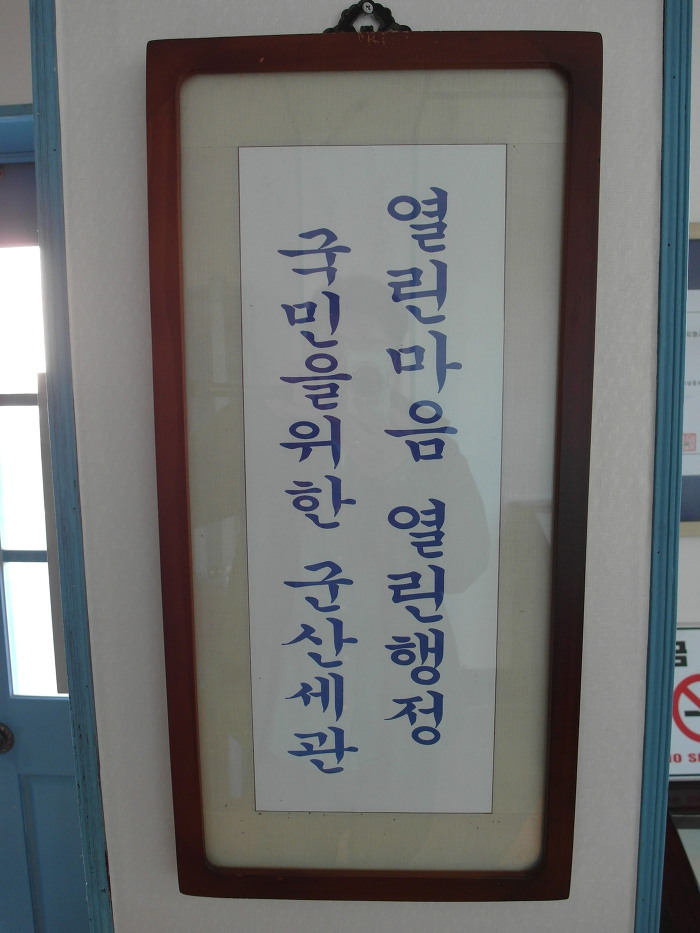 열린마음 열린행정
국민을위한 군산세관
금